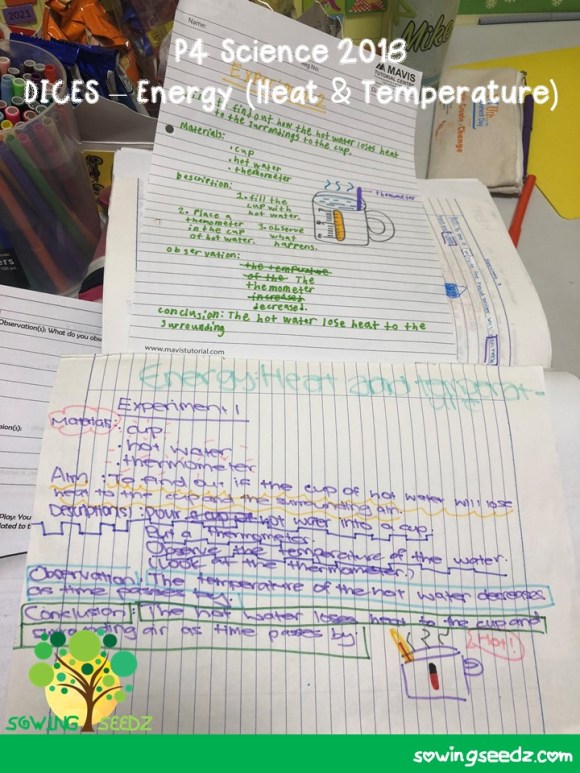 P4 Science 2018
DICES – Energy (Heat & Temperature)
2021
Mike
Name:
MAVIS
TUTORIAL CENTRE
find out how the hot water loses heat
to the surroundings to the cup.
Materials:
• cup
• hot water
• themometer
Description:
1. fill the
cup with
hot water.
2. Place a
themometer
in the cup
of hot water.
3. observe
what
happens.
thermometer
observation:
the temperature
of the The
themometer
increased
decreased.
conclusion: The hot water lose heat to the
surrounding
www.mavistutorial.com
Observation(s): What do you obs
Energy: Heat and temperat-
ure
Experiment 1
Materials: cup
• hot water
• thermometer
Aim: To find out if the cup of hot water will lose
heat to the cup and the surrounding air.
Descriptions: Pour hot water into a cup.
Put a thermometer.
Observe the temperature of the water.
(Look at the thermometer.)
Observation: The temperature of the hot water decreases
as time passes by.
Conclusion: The hot water loses heat to the cup and
surrounding air as time passes by.
Hot!
SOWING SEEDZ
sowingseedz.com